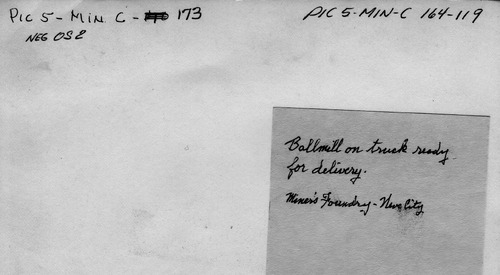 PIC 5 - MIN C - 173
PIC 5-MIN-C 164-119
NEG OS2
Ballmill on truck ready
for delivery.
Miner's Foundry - Neva City